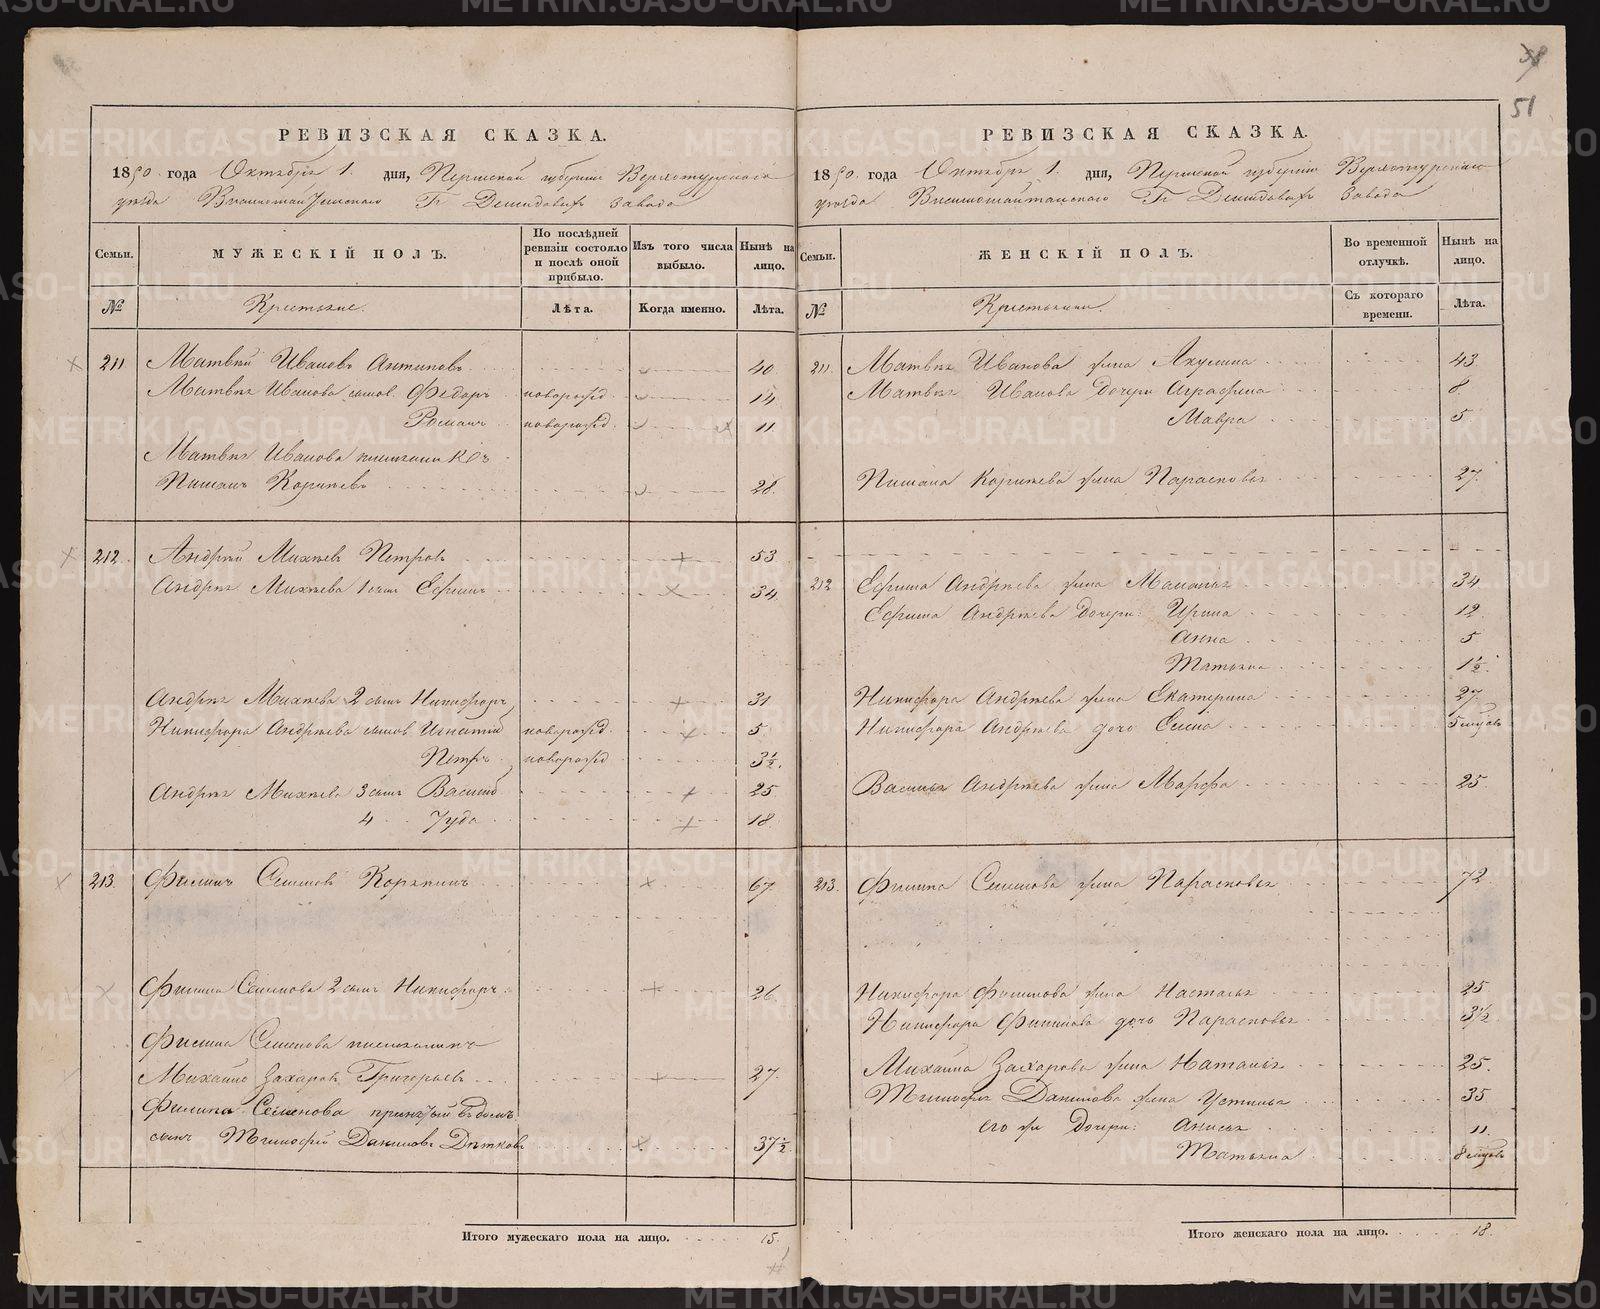 51
РЕВИЗСКАЯ СКАЗКА.
1850 года Октября 1. дня, Пермской губернiи Верхотурскаго
уѣзда Висимошайтанскаго Гг Демидовыхъ завода
Семьи. МУЖЕСКІЙ ПОЛЪ. По послѣдней ревизіи состояло и послѣ оной прибыло. Изъ того числа выбыло. Нынѣ на лицо.
№ Крестьяне. Лѣта. Когда именно. Лѣта.
211 Матвѣй Ивановъ Антиповъ 40
Матвѣя Иванова сынов. Федоръ новорожд. 14
Романъ новорожд. 11
Матвѣя Иванова
28.
212 Андрей Михѣевъ Петровъ 53
Андрея Михѣева 1 сынъ Ефимъ 34
Андрея Михѣева 2 сынъ Никифоръ 31
Никифора Андрѣева сынов Игнатий новорожд. 5
Петръ новорожд. 3½.
Андрея Михѣева 3 сынъ Василий 25
4 Iуда 18.
213. Филипъ Семеновъ Корякинъ 67
Филипа Семенова 2 сынъ Никифоръ 26
Филипа Семенова
Михайло Захаровъ Григорьевъ 27.
Филипа Семенова принятый въ домъ
сынъ Тимофей Даниловъ Дятковъ 37½
Итого мужескаго пола на лицо. 15.
РЕВИЗСКАЯ СКАЗКА.
1850 года Октября 1. дня, Пермской губернiи Верхотурскаго
уѣзда Висимошайтанскаго Гг Демидовыхъ завода
Семьи. ЖЕНСКІЙ ПОЛЪ. Во временной отлучкѣ. Нынѣ на лицо.
№ Крестьянки. Съ котораго времени. Лѣта.
211. Матвѣя Иванова жена Акулина 43
Матвѣя Иванова дочери Аграфина 8.
Мавра 5.
жена Парасковья 27.
212 Ефима Андрѣева жена Маланья 34
Ефима Андрѣева дочери: Ирина 12
Анна 5
Татьяна 1½.
Никифора Андрѣева жена Екатерина 27.
Никифора Андрѣева дочь Елена 5 мѣсяцовъ
Василья Андрѣева жена Марфа 25.
213. Филипа Семенова жена Парасковья 72.
Никифора Филипова жена Настасья 25
Никифора Филипова дочь Парасковья 3½
Михаила Захарова жена Наталья 25.
Тимофея Данилова жена Устинья 35
его же дочери: Анисья 11
Татьяна 8 мѣсяцовъ
Итого женскаго пола на лицо. 18.
METRIKI.GASO-URAL.RU